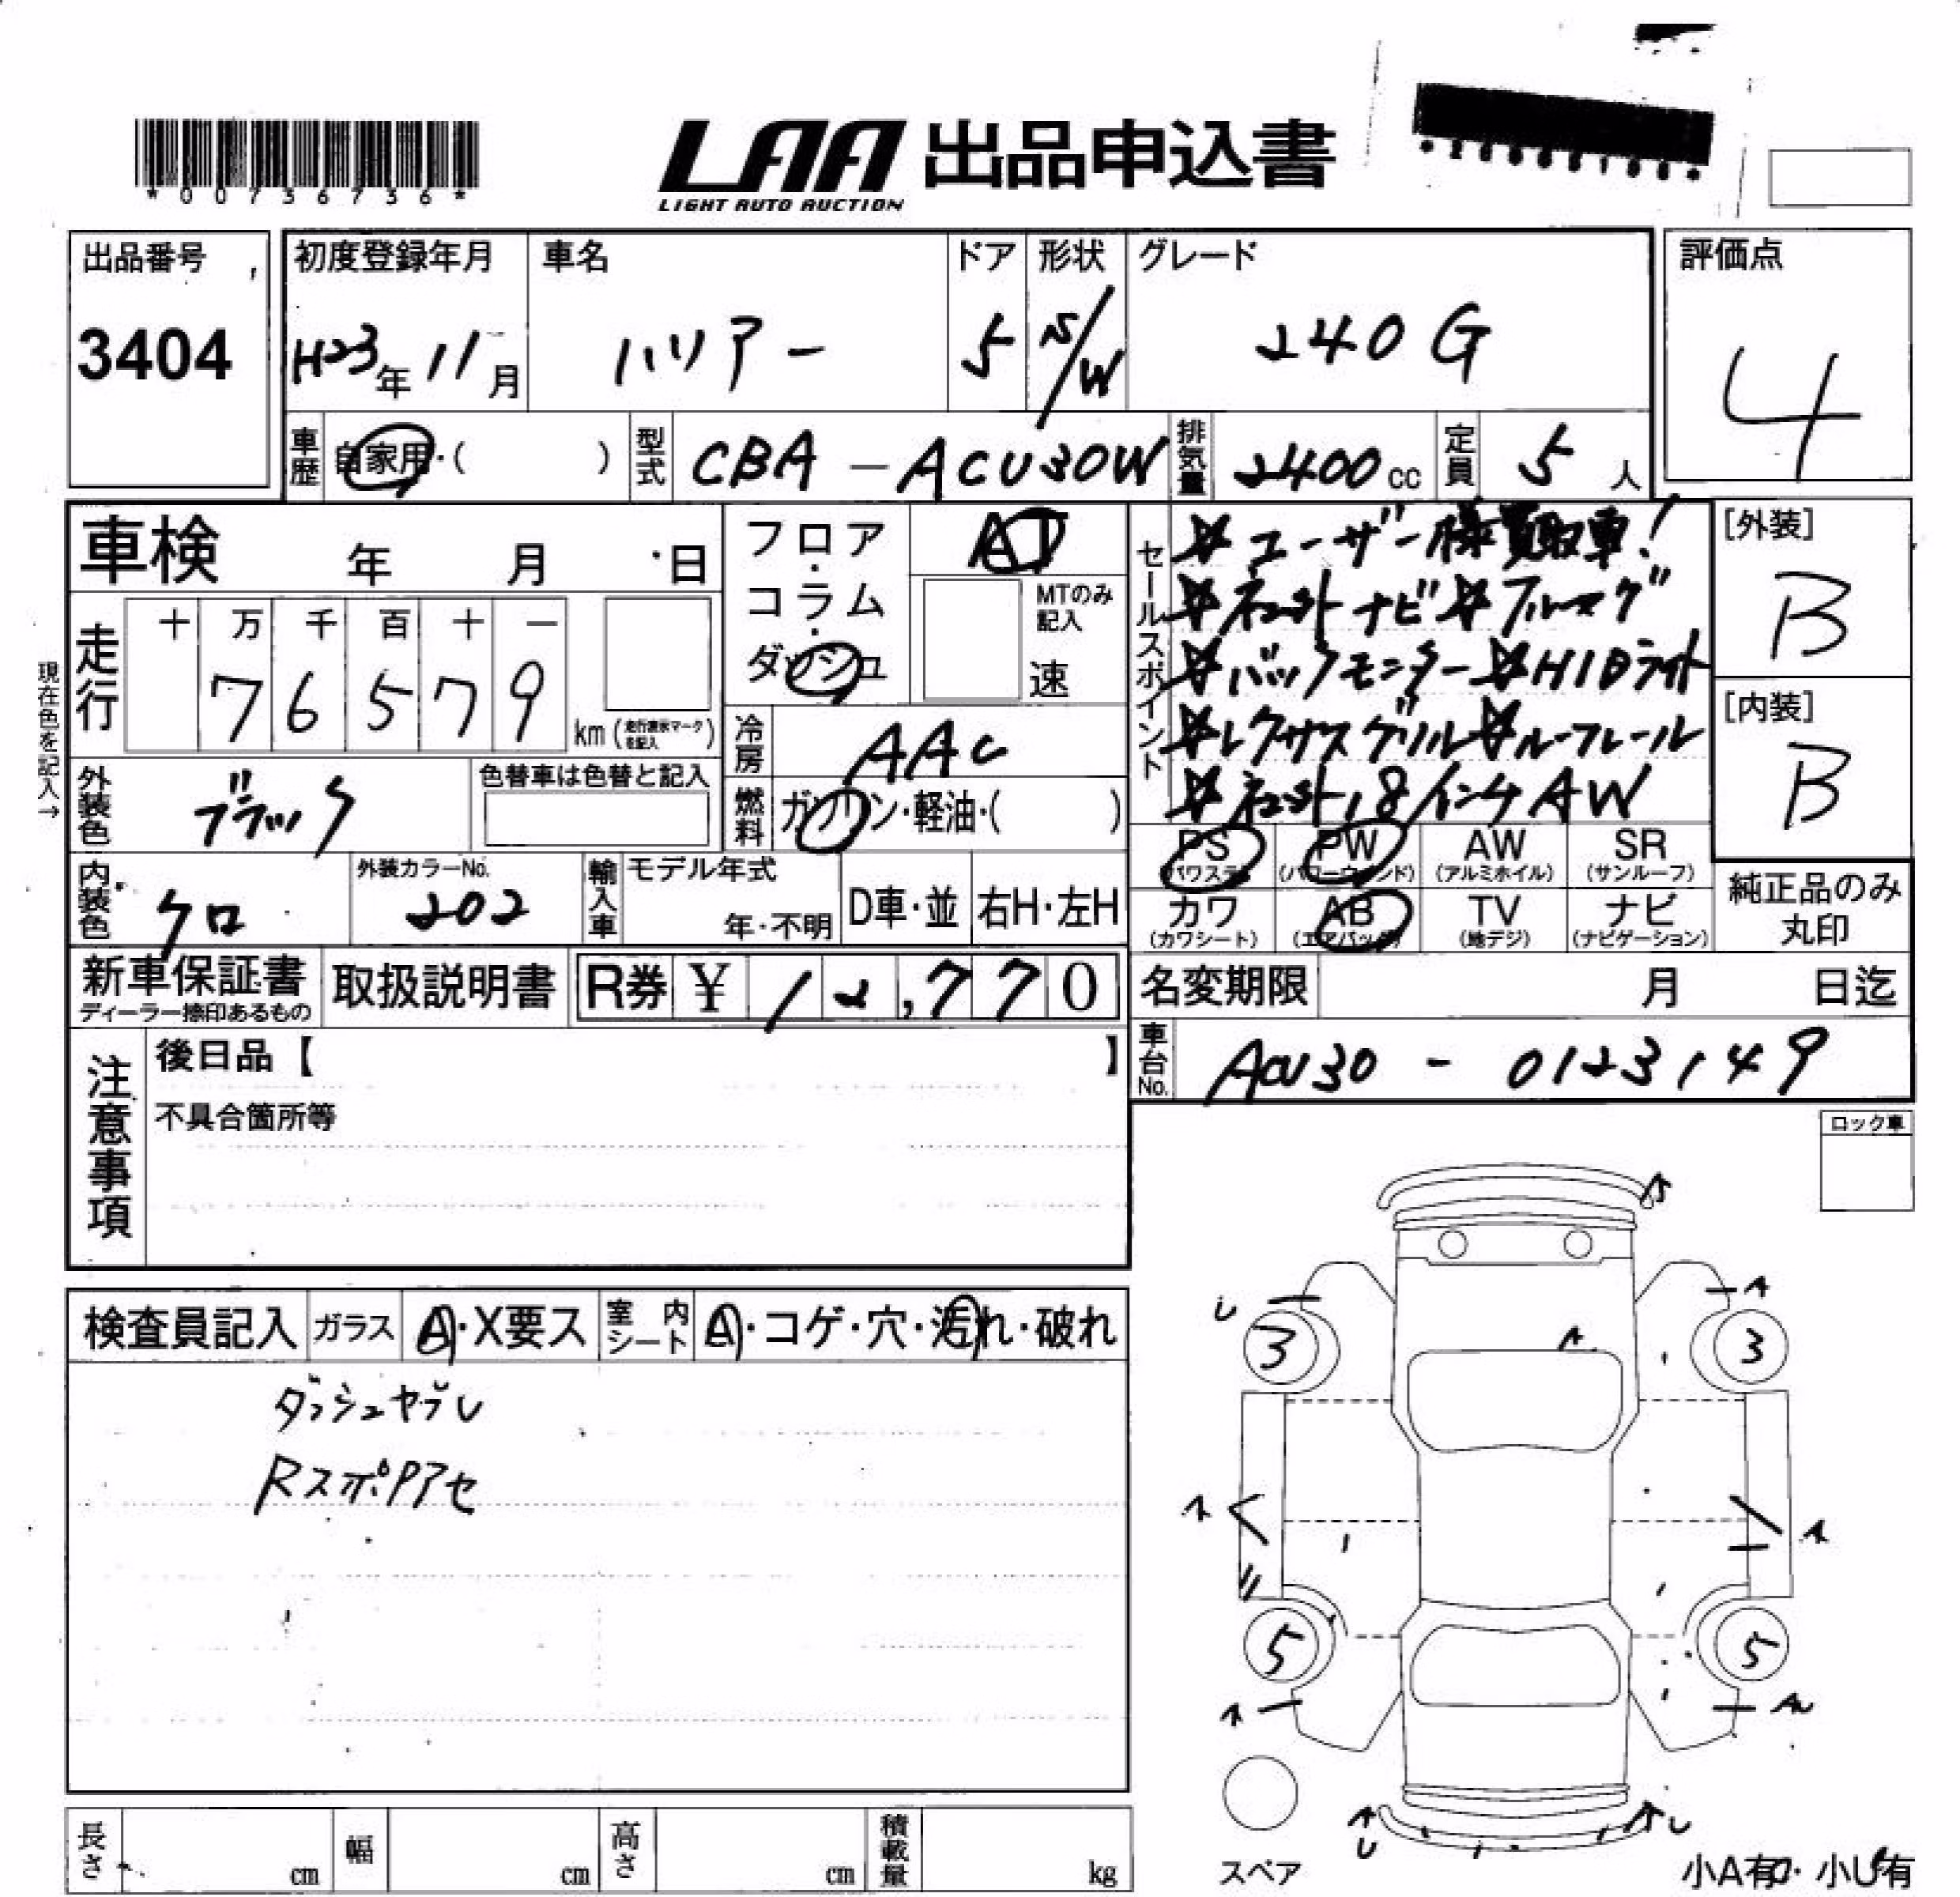 *00736736*
LAA 出品申込書
LIGHT AUTO AUCTION
出品番号
3404
初度登録年月
H23年11月
車名
ハリアー
ドア
5
形状
S/W
グレード
240G
評価点
4
車歴
自家用・( )
型式
CBA-ACU30W
排気量
2400cc
定員
5人
車検 年 月 日
フロア・コラム・ダッシュ
AT
MTのみ記入
速
セールスポイント
☆ユーザー様買取車!
☆ネットナビ☆フルセグ
☆バックモニター☆HIDライト
☆レクサスグリル☆ルーフレール
☆ 18インチAW
[外装]
B
[内装]
B
現在色を記入→
走行
十 万 千 百 十 一
7 6 5 7 9
km(走行表示マークを記入)
冷房
AAC
外装色
ブラック
色替車は色替と記入
燃料
ガソリン・軽油・( )
PS
(パワステ)
PW
(パワーウィンド)
AW
(アルミホイル)
SR
(サンルーフ)
内装色
クロ
外装カラーNo.
202
輸入車
モデル年式
年・不明
D車・並
右H・左H
カワ
(カワシート)
AB
(エアバッグ)
TV
(地デジ)
ナビ
(ナビゲーション)
純正品のみ
丸印
新車保証書
ディーラー捺印あるもの
取扱説明書
R券 ¥12,770
名変期限 月 日迄
注意事項
後日品【 】
不具合箇所等
車台No.
ACU30-0123149
ロック車
検査員記入
ガラス
A・X要ス
室内シート
A・コゲ・穴・汚れ・破れ
ダッシュヤブレ
RスポPアセ
A
U
A
3
3
A
A
A
5
5
A
AU
AU
AU
スペア
小A有・小U有
長さ cm
幅 cm
高さ cm
積載量 kg